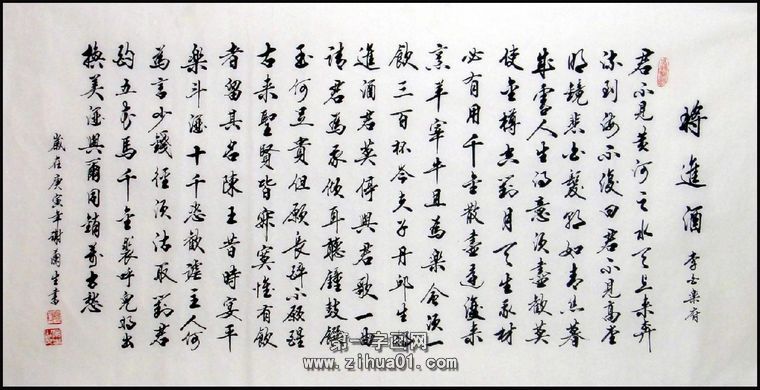 將進酒 李白樂府
君不見黄河之水天上来奔
流到海不復回君不見高堂
明鏡悲白髮朝如青絲暮
成雪人生得意须盡歡莫
使金樽空對月天生我材
必有用千金散盡還復来
烹羊宰牛且為樂會须一
飲三百杯岑夫子丹邱生
進酒君莫停與君歌一曲
請君為我傾耳聽鐘鼓饌
玉何足貴但願長醉不願醒
古来聖賢皆寂寞惟有飲
者留其名陳王昔時宴平
樂斗酒十千恣歡謔主人何
為言少錢徑须沽取對君
酌五花馬千金裘呼兒將出
换美酒與爾同銷萬古愁
歲在庚寅年謝生書
第一字画网
www.zihua01.com